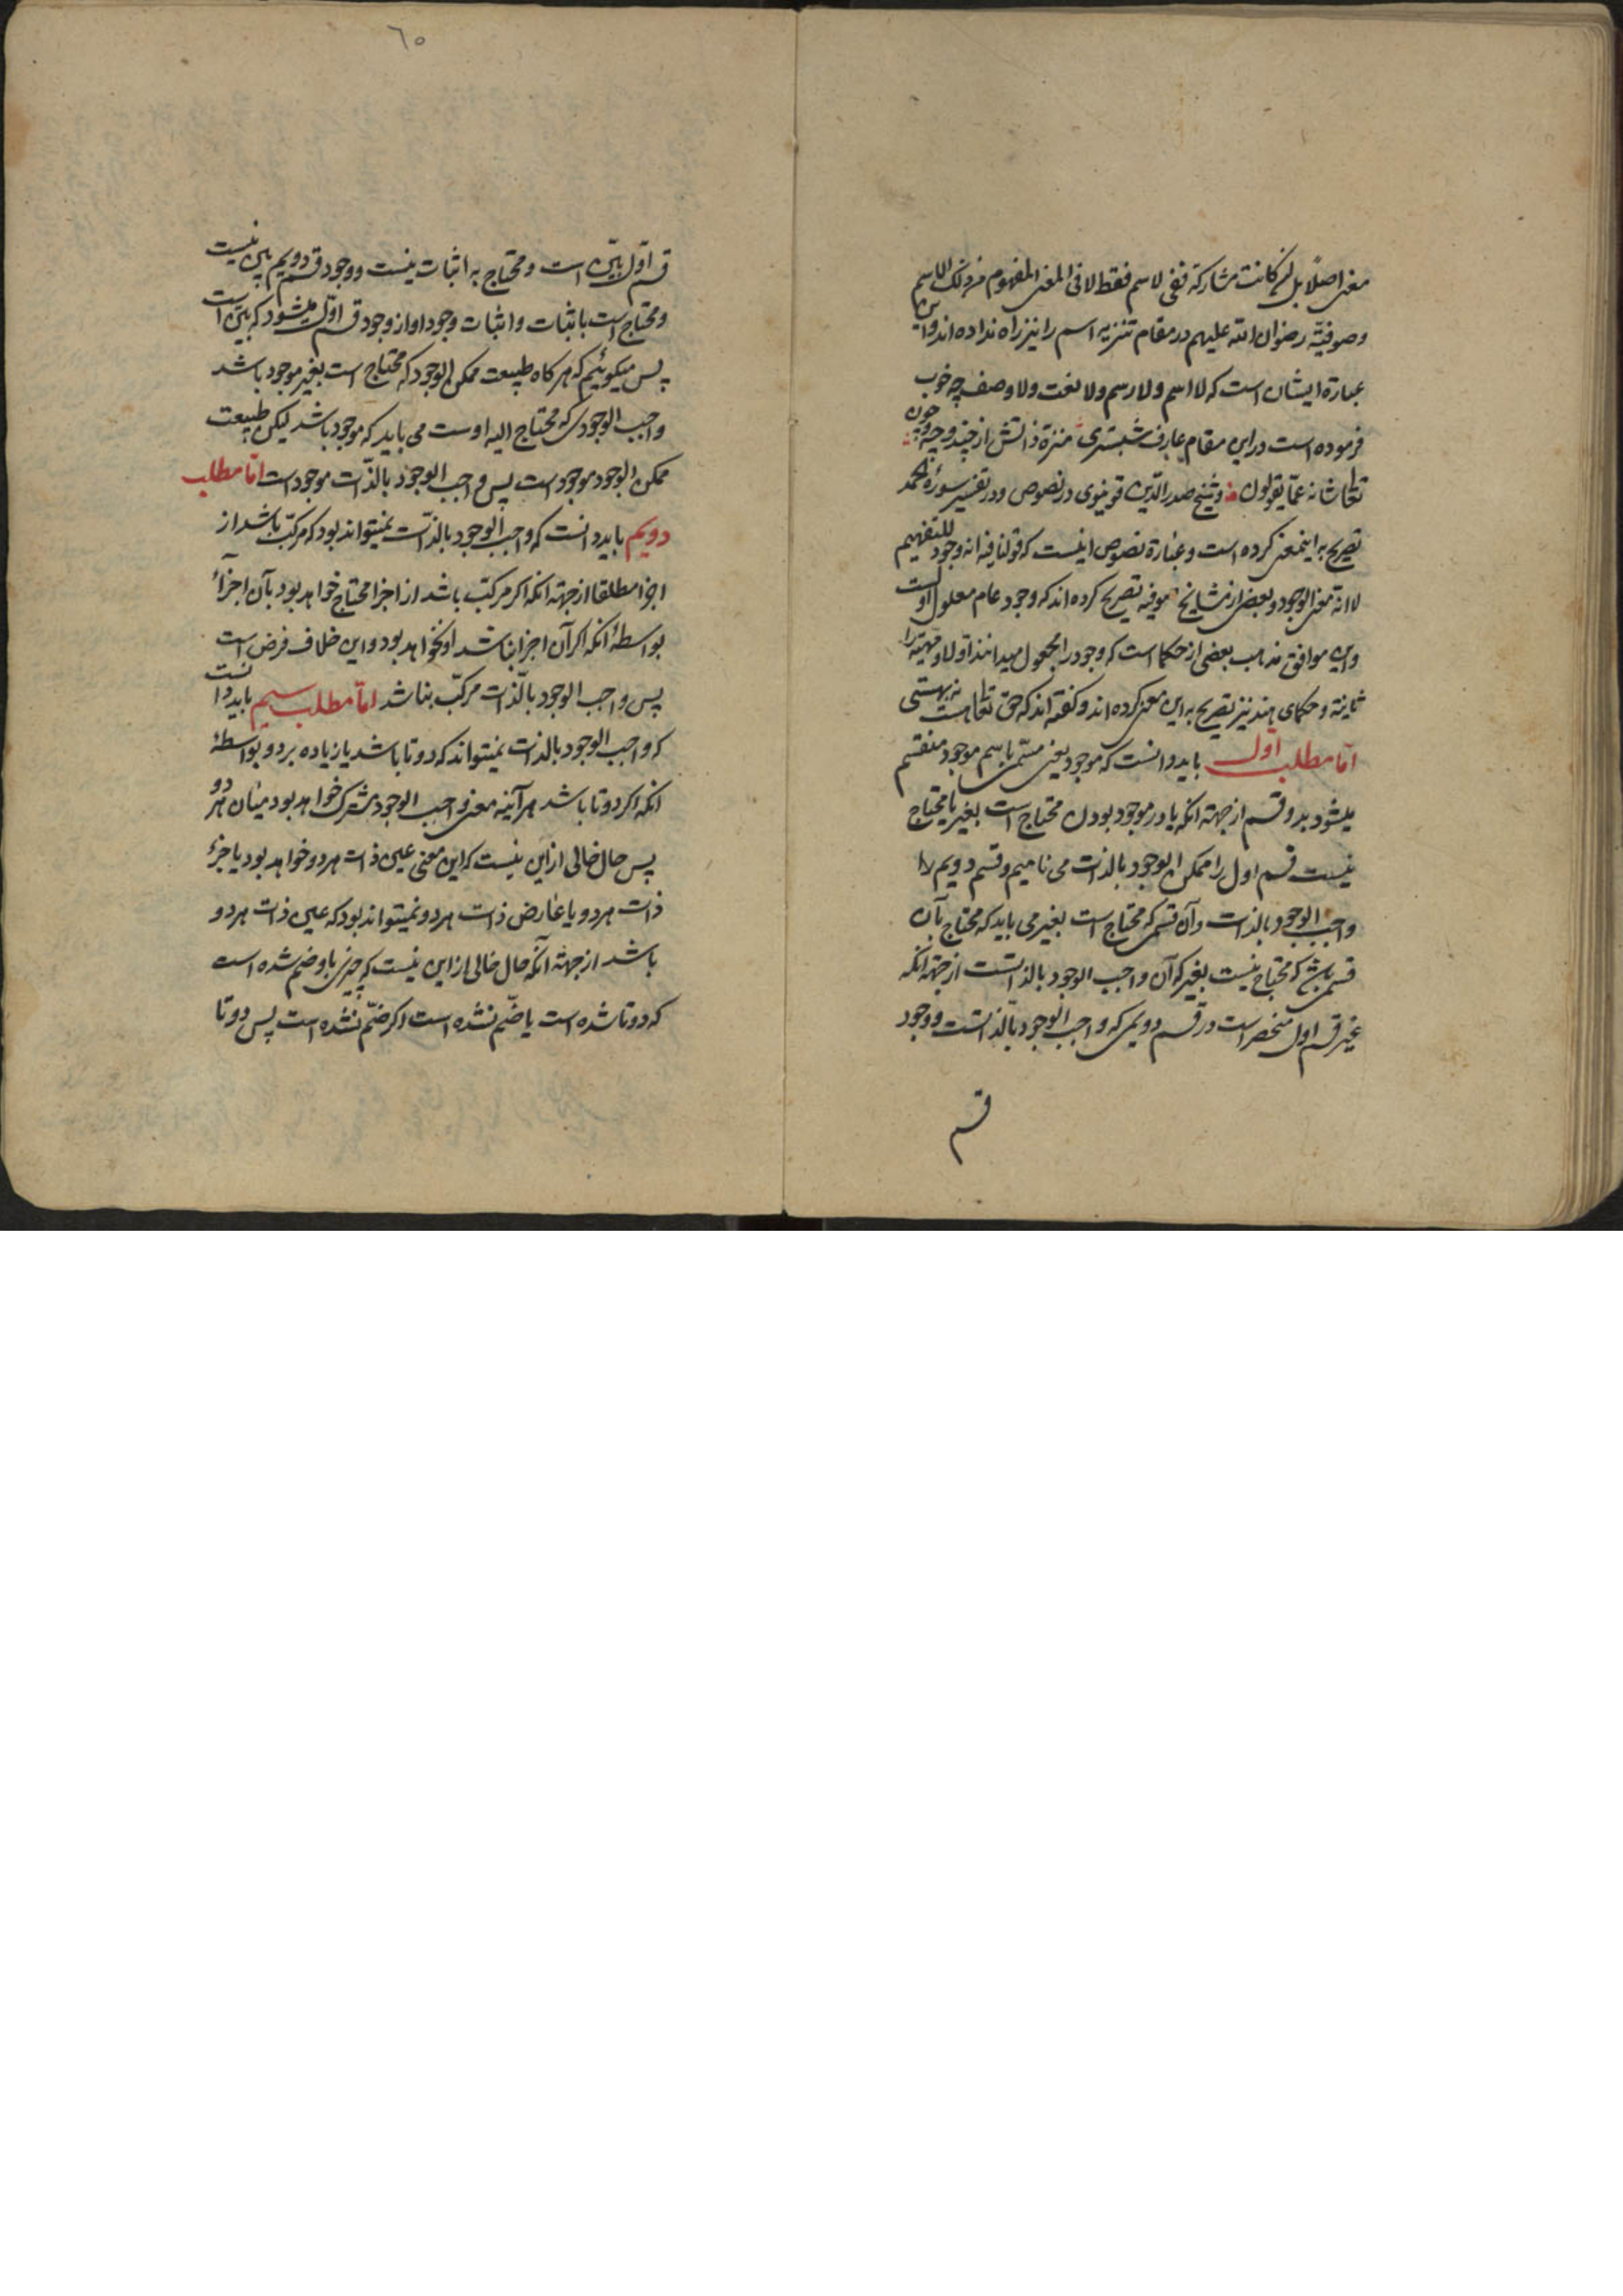 معنی اصلا بل لو کانت مشارکة ففی الاسم فقط لا فی المعنی المفهوم من ذلک الاسم
وصوفیّه رضوان الله علیهم در مقام تنزیه اسم را نیز راه نداده اند و این
عبارة ایشان است که لا اسم ولا رسم ولا نعت ولا وصف چه خوب
فرموده است در این مقام عارف شبستری منزه ذاتش از چند و چه و چون
تعالی شانه عمّا یقولون و شیخ صدر الدّین قونیوی در نصوص و در تفسیر سورۀ الحمد
تصریح به اینمعنی کرده است و عبارة نصوص اینست که قولنا فیه انه وجود للتفهیم
لا انه معنی الوجود و بعضی از مشایخ صوفیه تصریح کرده اند که وجود عام معلول اوست
و این موافق مذهب بعضی از حکما است که وجود را مجعول میدانند اولا و مهیّة را
ثانیة و حکمای هند نیز تصریح به این معنی کرده اند و گفته اند که حق تعالی هست نه بهستی
امّا مطلب اول باید دانست که موجود یعنی مسمّی باسم موجود منقسم
میشود بدو قسم از جهة انکه یا در موجود بودن محتاج است بغیر یا محتاج
نیست قسم اول را ممکن الوجود بالذات می نامیم و قسم دویم را
واجب الوجود بالذات و آن قسمی که محتاج است بغیر می باید که محتاج بآن
قسمی باشد که محتاج نیست بغیر که آن واجب الوجود بالذاتست از جهة انکه
غیر قسم اول منحصر است در قسم دویمی که واجب الوجود بالذاتست و وجود
قسم
٦٥
قسم اوّل بیّن است و محتاج به اثبات نیست و وجود قسم دویم بیّن نیست
و محتاج است باثبات و اثبات وجود او از وجود قسم اوّل میشود که بیّن است
پس میکوئیم که هرکاه طبیعت ممکن الوجود که محتاج است بغیر موجود باشد
واجب الوجودی که محتاج الیه اوست می باید که موجود باشد لیکن طبیعت
ممکن الوجود موجود است پس واجب الوجود بالذّات موجود است امّا مطلب
دویم باید دانست که واجب الوجود بالذّات نمیتواند بود که مرکّب باشد از
اجزا مطلقا از جهة انکه اکر مرکّب باشد از اجزا محتاج خواهد بود بآن اجزآء
بواسطۀ انکه اکر آن اجزا نباشد او نخواهد بود و این خلاف فرض است
پس واجب الوجود بالّذات مرکّب نباشد امّا مطلب سیم باید دانست
که واجب الوجود بالذات نمیتواند که دو تا باشد یا زیاده بر دو بواسطۀ
انکه اکر دو تا باشد هر آینه معنی واجب الوجود مشترک خواهد بود میان هر دو
پس حال خالی از این نیست که این معنی عین ذات هر دو خواهد بود یا جزء
ذات هر دو یا عارض ذات هر دو نمیتواند بود که عین ذات هر دو
باشد از جهة آنکه حال خالی از این نیست که چیزی باو ضم شده است
که دو تا شده است یا ضّم نشده است اکر ضّم نشده است پس دو تا